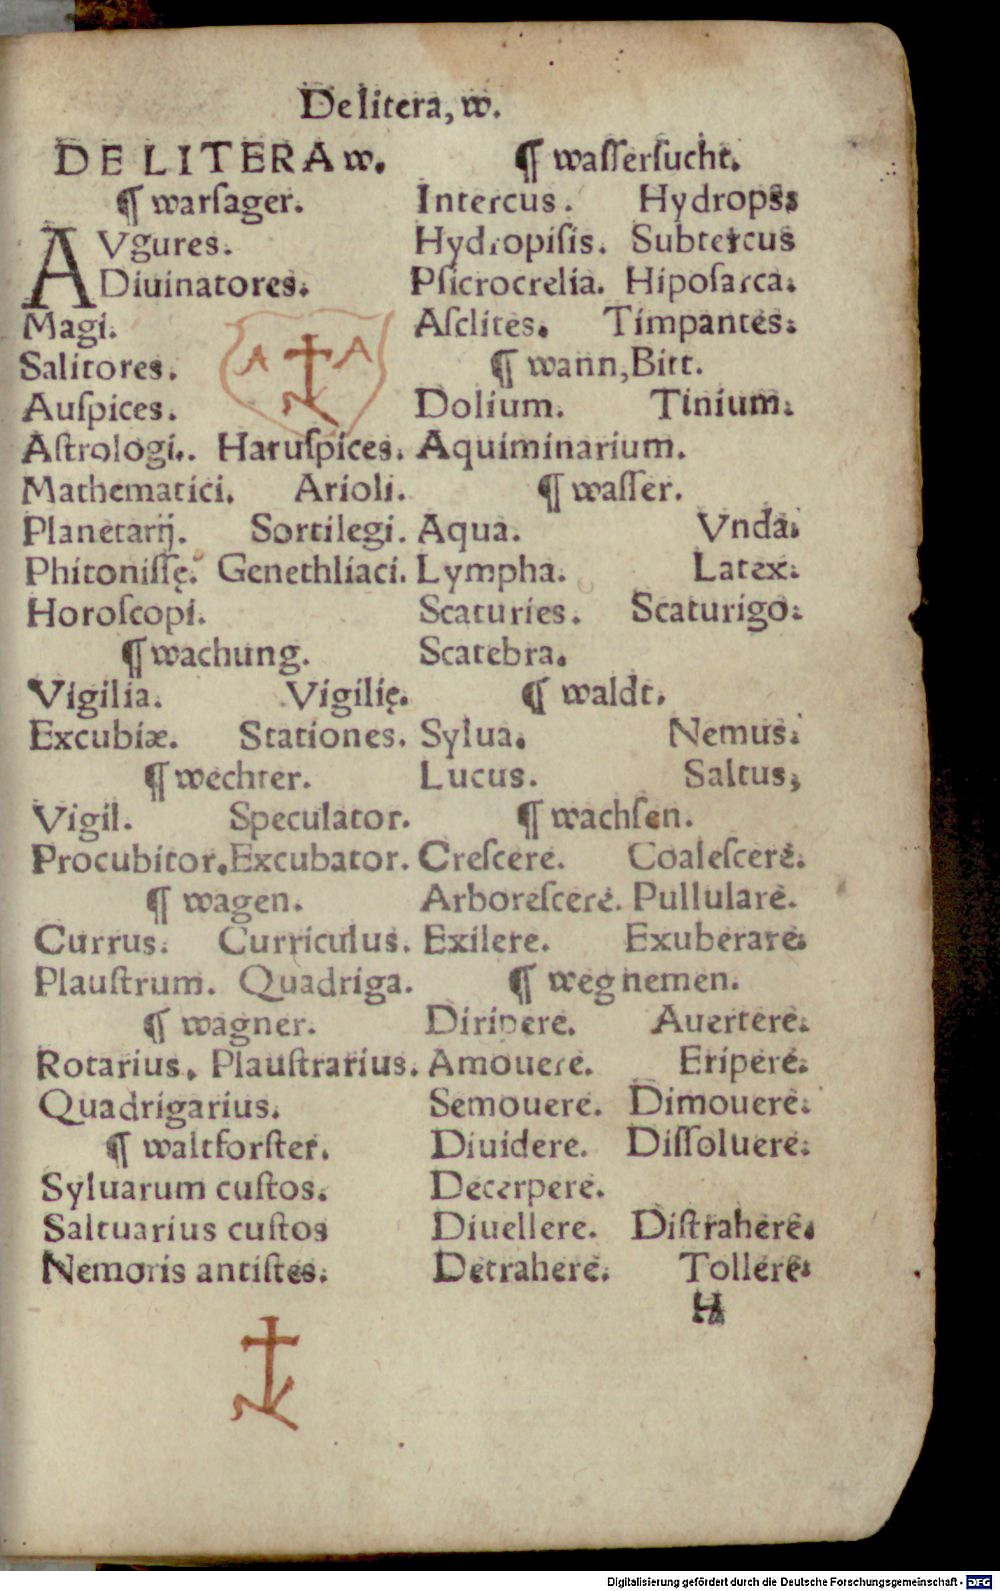 De litera, w.
DE LITERA w.
¶ warſager.
AVgures.
Diuinatores.
Magi.
A A
Salitores.
Auſpices.
Aſtrologi. Haruſpices.
Mathematici. Arioli.
Planetarij. Sortilegi.
Phitoniſſę. Genethliaci.
Horoſcopi.
¶ wachung.
Vigilia. Vigilię.
Excubiæ. Stationes.
¶ wechter.
Vigil. Speculator.
Procubitor. Excubator.
¶ wagen.
Currus. Curriculus.
Plauſtrum. Quadriga.
¶ wagner.
Rotarius. Plauſtrarius.
Quadrigarius.
¶ waltforſter.
Syluarum cuſtos.
Saltuarius cuſtos
Nemoris antiſtes.
¶ waſſerſucht.
Intercus. Hydrops.
Hydropiſis. Subtercus
Pſicrocrelia. Hipoſarca.
Aſclites. Timpantes.
¶ wann, Bitt.
Dolium. Tinium.
Aquiminarium.
¶ waſſer.
Aqua. Vnda.
Lympha. Latex.
Scaturies. Scaturigo.
Scatebra.
¶ waldt.
Sylua. Nemus.
Lucus. Saltus,
¶ wachſen.
Creſcere. Coaleſcere.
Arboreſcere. Pullulare.
Exilere. Exuberare.
¶ weg nemen.
Diripere. Auertere.
Amouere. Eripere.
Semouere. Dimouere.
Diuidere. Diſſoluere.
Decerpere.
Diuellere. Diſtrahere.
Detrahere. Tollere
H
Digitalisierung gefördert durch die Deutsche Forschungsgemeinschaft - DFG